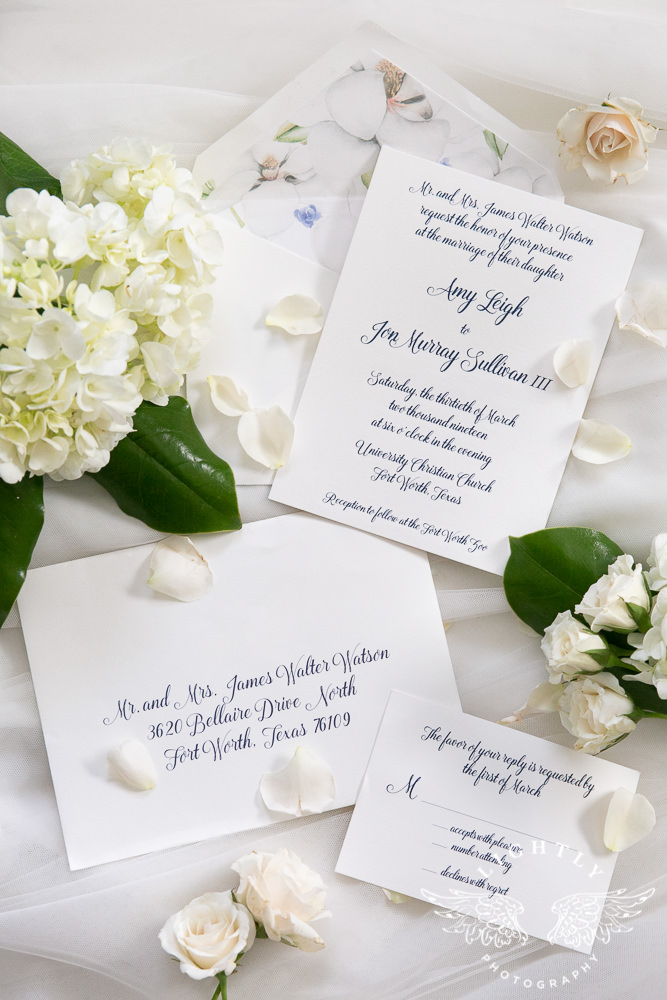 Mr. and Mrs. James Walter Watson
request the honor of your presence
at the marriage of their daughter
Amy Leigh
to
Jon Murray Sullivan III
Saturday, the thirtieth of March
two thousand nineteen
at six o'clock in the evening
University Christian Church
Fort Worth, Texas
Reception to follow at the Fort Worth Zoo
Mr. and Mrs. James Walter Watson
3620 Bellaire Drive North
Fort Worth, Texas 76109
The favor of your reply is requested by
the first of March
M
accepts with pleasure
number attending
declines with regret
LIGHTLY
PHOTOGRAPHY